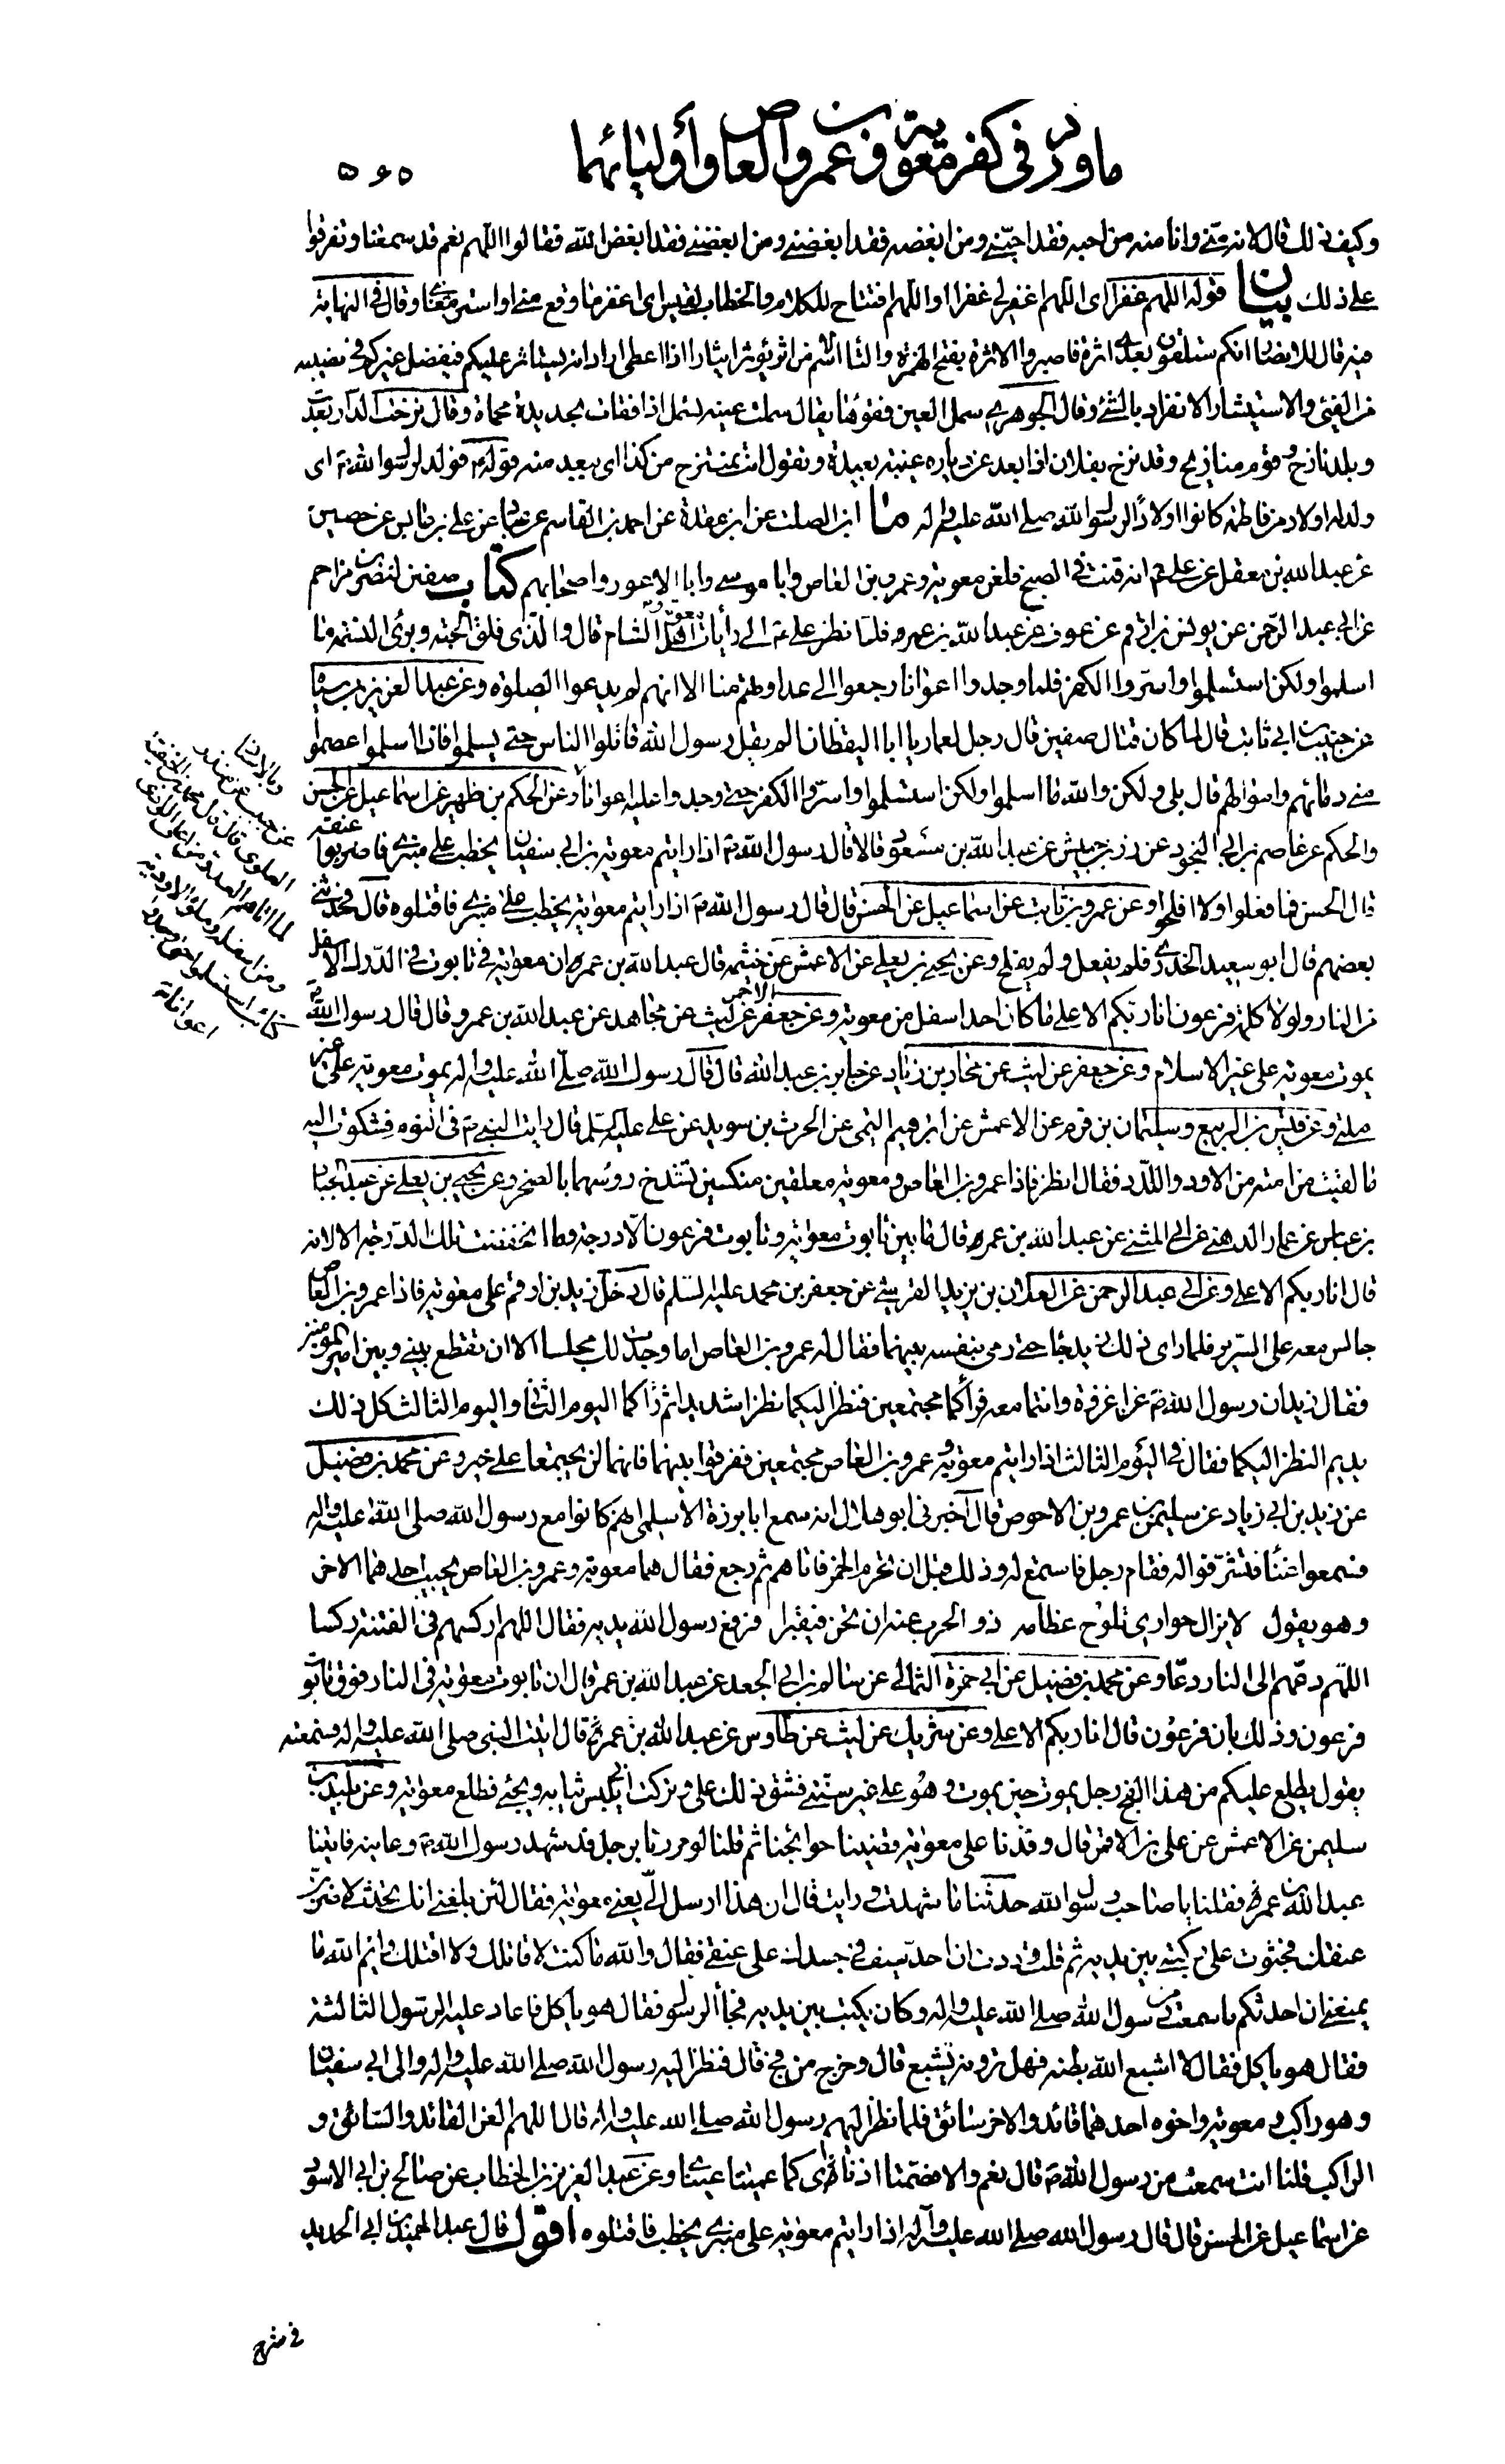 ما ورد في كفر معوية و عمرو بن العاص و أوليائهما
٥٦٥
وكيف ذلك قال لانه مني وانا منه من احبه فقد احبني ومن ابغضه فقد ابغضني ومن ابغضني فقد ابغض الله فقالوا اللهم نعم قد سمعنا وتفرقوا
على ذلك بيان قوله اللهم غفرا اى اللهم اغفر لي غفرا او اللهم افتتاح للكلام والخطاب لقيس اى اغفر ما وقع مني او استر معايبي وقال في النهاية
فيه قال للانصار انكم ستلقون بعدى اثرة فاصبروا الاثرة بفتح الهمزة والثاء الاسم من اثر يؤثر ايثارا اذا اعطى اراد انه يستاثر عليكم فيفضل غيركم في نصيبه
من الفيئ والاستيثار الانفراد بالشئ وقال الجوهري سمل العين فقؤها يقال سملت عينه تسمل اذا فقات بحديدة محماة وقال نزحت الدار بعدت
وبلد نازح وقوم منازيح وقد نزح بفلان اذا بعد عن دياره غيبة بعيدة وتقول انت بمنتزح من كذا اى ببعد منه قوله فولد لرسول الله ص اى
ولد له اولاد من فاطمة كانوا اولادا لرسول الله صلى الله عليه واله ما ابن الصلت عن ابن عقدة عن احمد بن القاسم عن عباد عن علي بن عابس عن حصين
عن عبد الله بن معقل عن علي ع انه قنت في الصبح فلعن معوية وعمرو بن العاص وابا موسى وابا الاعور واصحابهم كتاب صفين لنصر بن مزاحم
عن ابي عبد الرحمن عن يونس بن ارقم عن عوف عن عبد الله بن عمرو فلما نظر علي ع الى رايات معوية واهل الشام قال والذي فلق الحبة وبرئ النسمة ما
اسلموا ولكن استسلموا واسروا الكفر فلما وجدوا اعوانا رجعوا الى عداوتهم منا الا انهم لم يدعوا الصلوة وعن عبد العزيز بن سياه
عن حبيب بن ابي ثابت قال لما كان قتال صفين قال رجل لعمار يا ابا اليقظان الم يقل رسول الله قاتلوا الناس حتى يسلموا فاذا اسلموا عصموا
مني دمائهم واموالهم قال بلى ولكن والله ما اسلموا ولكن استسلموا واسروا الكفر حتى وجدوا عليه اعوانا وعن الحكم بن ظهير عن اسماعيل عن الحسن
والحكم عن عاصم بن ابي النجود عن زر بن حبيش عن عبد الله بن مسعود قالا قال رسول الله ص اذا رايتم معوية بن ابي سفيان يخطب على منبري فاضربوا عنقه
قال الحسن فما فعلوا ولا افلحوا وعن عمرو بن ثابت عن اسماعيل عن الحسن قال قال رسول الله ص اذا رايتم معوية يخطب على منبري فاقتلوه قال فحدثني
بعضهم قال ابو سعيد الخدري فلم يفعل ولم يفلح وعن يحيى بن يعلى عن الاعمش عن خيثمة قال عبد الله بن عمر ان معوية في تابوت في الدرك الاسفل
من النار ولولا كلمة فرعون انا ربكم الاعلى ما كان احد اسفل من معوية وعن جعفر الاحمر عن ليث عن مجاهد عن عبد الله بن عمرو قال قال رسول الله ص
يموت معوية على غير الاسلام وعن جعفر عن ليث عن محارب بن زياد عن جابر بن عبد الله قال قال رسول الله صلى الله عليه واله يموت معوية على غير
ملتي وعن قيس بن الربيع وسليمان بن قرم عن الاعمش عن ابراهيم التيمي عن الحرث بن سويد عن علي عليه السلم قال رايت النبي ص في النوم فشكوت اليه
ما لقيت من امته من الاود واللدد فقال انظر فاذا عمرو بن العاص ومعوية معلقين منكسين تشدخ رؤسهما بالصخر وعن يحيى بن يعلى عن عبد الجبار
بن عباس عن عمار الدهني عن ابي المثنى عن عبد الله بن عمر قال ما بين تابوت معوية وتابوت فرعون الا درجة وما انخفضت تلك الدرجة الا لانه
قال انا ربكم الاعلى وعن ابي عبد الرحمن عن العلاء بن يزيد القرشي عن جعفر بن محمد عليه السلم قال دخل زيد بن ارقم على معوية فاذا عمرو بن العاص
جالس معه على السرير فلما راى ذلك زيد جاء حتى رمى بنفسه بينهما فقال له عمرو بن العاص اما وجدت لك مجلسا الا ان تقطع بيني وبين امير المؤمنين
فقال زيد ان رسول الله ص غزا غزوة وانتما معه فرأكما مجتمعين فنظر اليكما نظرا شديدا ثم رأكما اليوم الثاني واليوم الثالث كل ذلك
يديم النظر اليكما فقال في اليوم الثالث اذا رايتم معوية وعمرو بن العاص مجتمعين ففرقوا بينهما فانهما لن يجتمعا على خير وعن محمد بن فضيل
عن زيد بن ابي زياد عن سليمن بن عمرو بن الاحوص قال اخبرني ابو هلال انه سمع ابا برزة الاسلمي انهم كانوا مع رسول الله صلى الله عليه واله
فسمعوا غناء فتشرفوا له فقام رجل فاستمع له وذلك قبل ان تحرم الخمر فاتاهم ثم رجع فقال هما معوية وعمرو بن العاص يجيب احدهما الاخر
وهو يقول لا يزال حواري تلوح عظامه زوا الحرب عنه ان يحن فيقبرا فرفع رسول الله يديه فقال اللهم اركسهم في الفتنة ركسا
اللهم دعهم الى النار دعا وعن محمد بن فضيل عن ابي حمزة الثمالي عن سالم بن ابي الجعد عن عبد الله بن عمر قال ان تابوت معوية في النار فوق تابوت
فرعون وذلك بان فرعون قال انا ربكم الاعلى وعن شريك عن ليث عن طاوس عن عبد الله بن عمر قال اتيت النبي صلى الله عليه واله فسمعته
يقول يطلع عليكم من هذا الفج رجل يموت حين يموت وهو على غير سنتي فشق ذلك علي وتركت ابي يلبس ثيابه ويجئ فطلع معوية وعن تليد بن
سليمن عن الاعمش عن علي بن الاقمر قال وفدنا على معوية وقضينا حوائجنا ثم قلنا لو مررنا برجل قد شهد رسول الله ص وعاينه فاتينا
عبد الله بن عمر فقلنا يا صاحب رسول الله حدثنا ما شهدت ورايت قال ان هذا ارسل الي يعني معوية فقال لئن بلغني انك تحدث لاضربن
عنقك فجثوت على ركبتي بين يديه ثم قلت وددت ان احد سيف في جسدك على عنقي فقال والله ما كنت لاقاتلك ولا اقتلك وايم الله ما
يمنعني ان احدثكم ما سمعت من رسول الله صلى الله عليه واله وكان يكتب بين يديه فجاء الرسول فقال هو ياكل فاعاد عليه الرسول الثالثة
فقال هو ياكل فقال لا اشبع الله بطنه فهل ترونه يشبع قال وخرج من فج قال فنظر اليه رسول الله صلى الله عليه واله والى ابي سفيان
وهو راكب و معوية واخوه احدهما قائد والاخر سائق فلما نظر اليهم رسول الله صلى الله عليه واله قال اللهم العن القائد والسائق و
الراكب قلنا انت سمعت من رسول الله ص قال نعم والا فصمتا اذناى كما عميتا عيناى وعن عبد العزيز بن الخطاب عن صالح بن ابي الاسود
عن اسماعيل عن الحسن قال قال رسول الله صلى الله عليه واله اذا رايتم معوية على منبري يخطب فاقتلوه اقول قال عبد الحميد بن ابي الحديد
في شرح